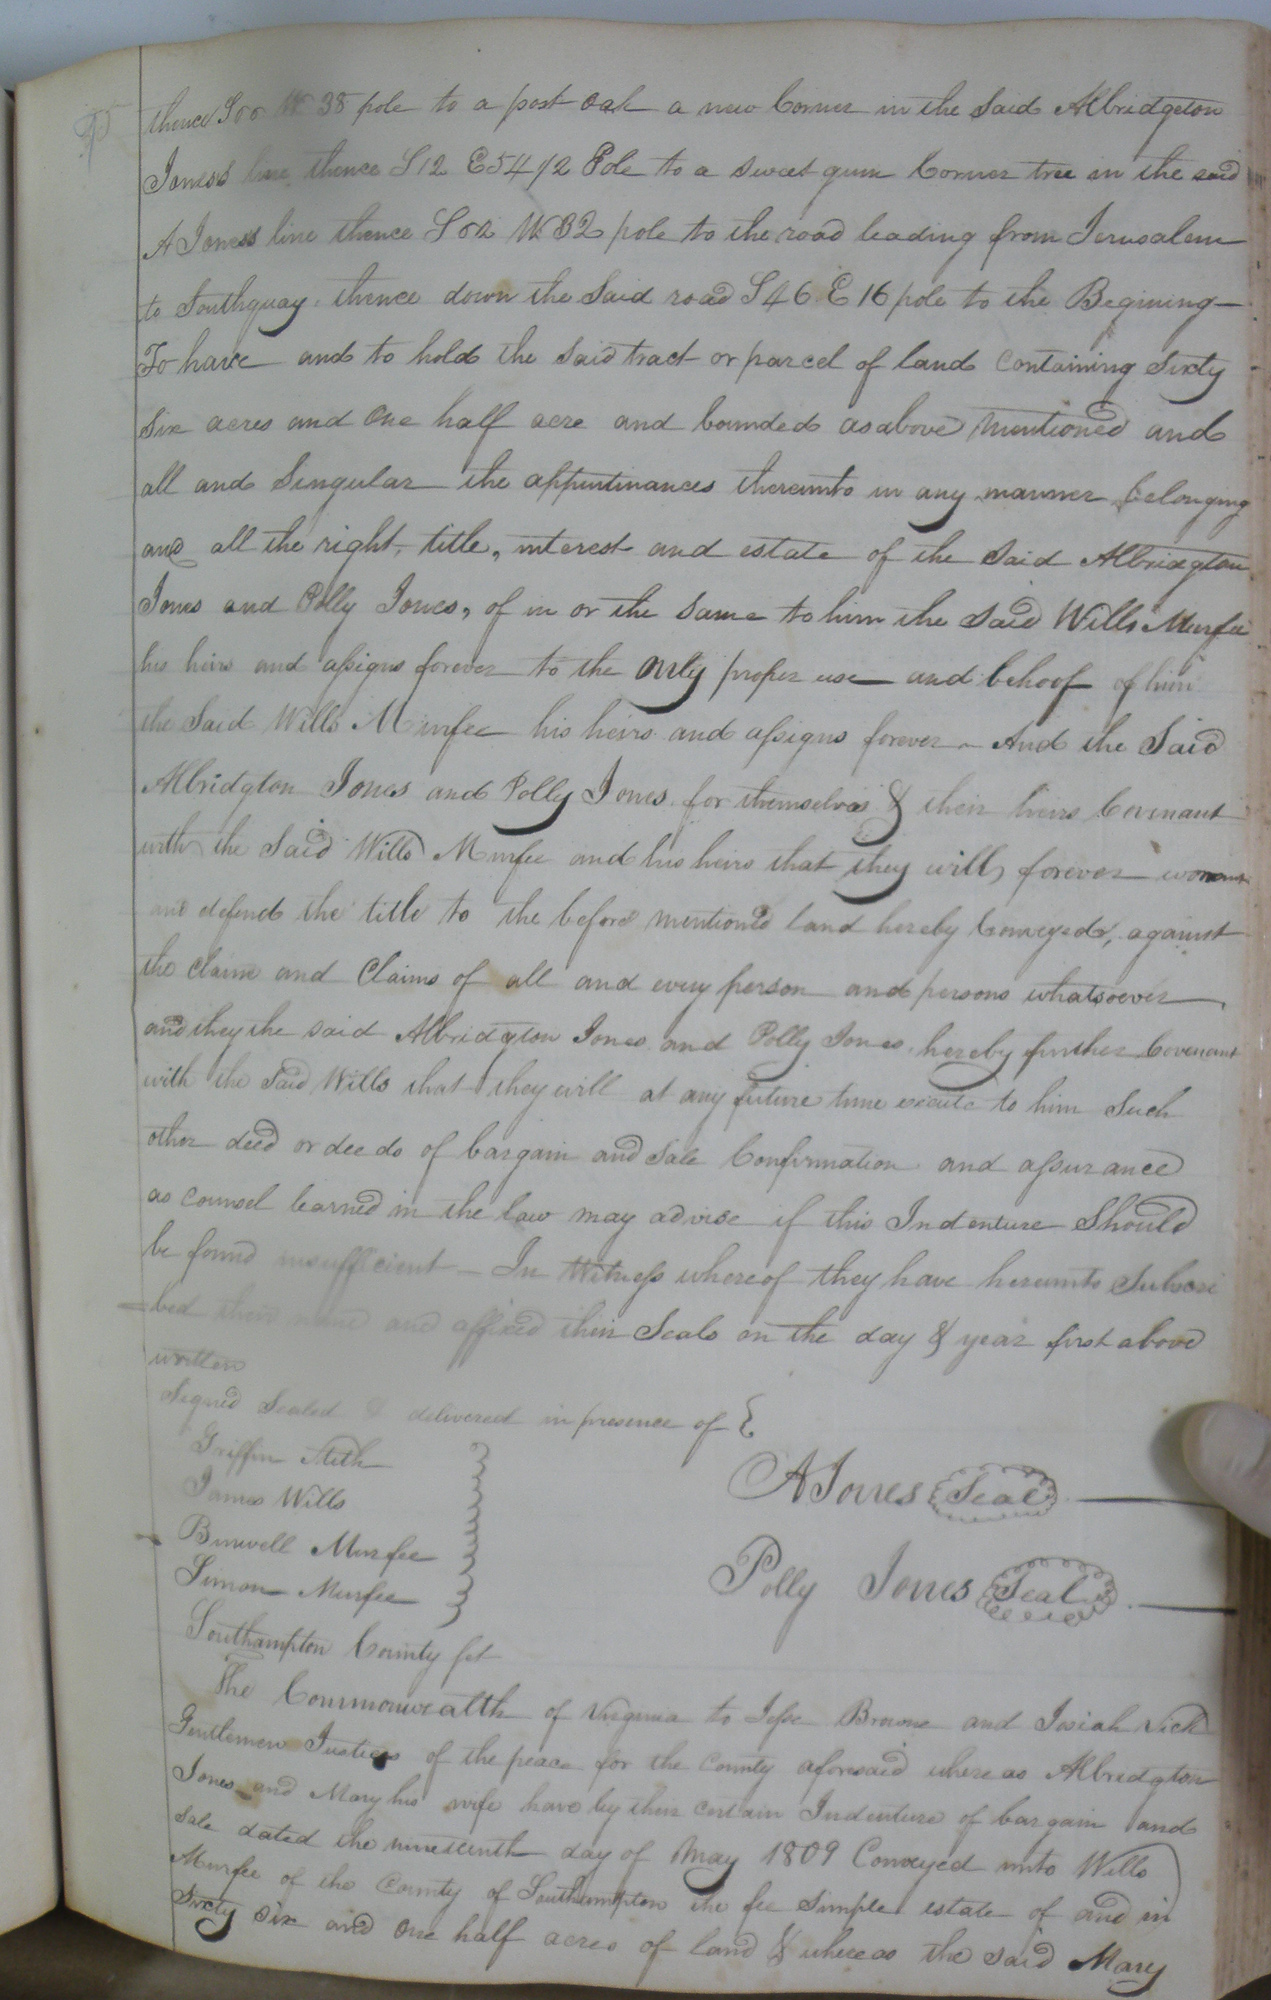 thence S W 38 pole to a post oak a new Corner in the Said Albridgeton
Jones's line thence S12 E54 1/2 Pole to a sweet gum Corner tree in the said
A Jones's line thence S 82 W 32 pole to the road leading from Jerusalem
to Southquay thence down the Said road S46 E 16 pole to the Begining
To have and to hold the said tract or parcel of land Containing Sixty
Six acres and One half acre and bounded as above mentioned and
all and Singular the appurtinances thereunto in any manner belonging
and all the right, title, interest and estate of the Said Albridgton
Jones and Polly Jones, of in or the same to him the Said Wills Murfee
his heirs and assigns forever to the only proper use and behoof of him
the Said Wills Murfee his heirs and assigns forever And the Said
Albridgton Jones and Polly Jones for themselves & their heirs Covenant
with the Said Wills Murfee and his heirs that they will forever warrant
and defend the title to the before mentioned land hereby Conveyed, against
the claim and Claims of all and every person and persons whatsoever
and they the said Albridgton Jones and Polly Jones hereby further Covenant
with the Said Wills that they will at any future time execute to him Such
other deed or deeds of bargain and Sale Confirmation and assurance
as counsel learned in the law may advise if this Indenture Should
be found insufficient - In Witness whereof they have hereunto Subscri
=bed their name and affixed their Seals on the day & year first above
written
Signed Sealed & delivered in presence of {
Griffin Stith
James Wills
Burwell Murfee
Simon Murfee
A Jones Seal
Polly Jones Seal
Southampton County Sct
The Commonwealth of Virginia to Jesse Browne and Josiah Vick
Gentlemen Justices of the peace for the County aforesaid whereas Albridgton
Jones and Mary his wife have by their certain Indenture of bargain and
Sale dated the nineteenth day of May 1809 Conveyed unto Wills
Murfee of the County of Southampton the fee simple estate of and in
Sixty six and one half acres of land & whereas the said Mary